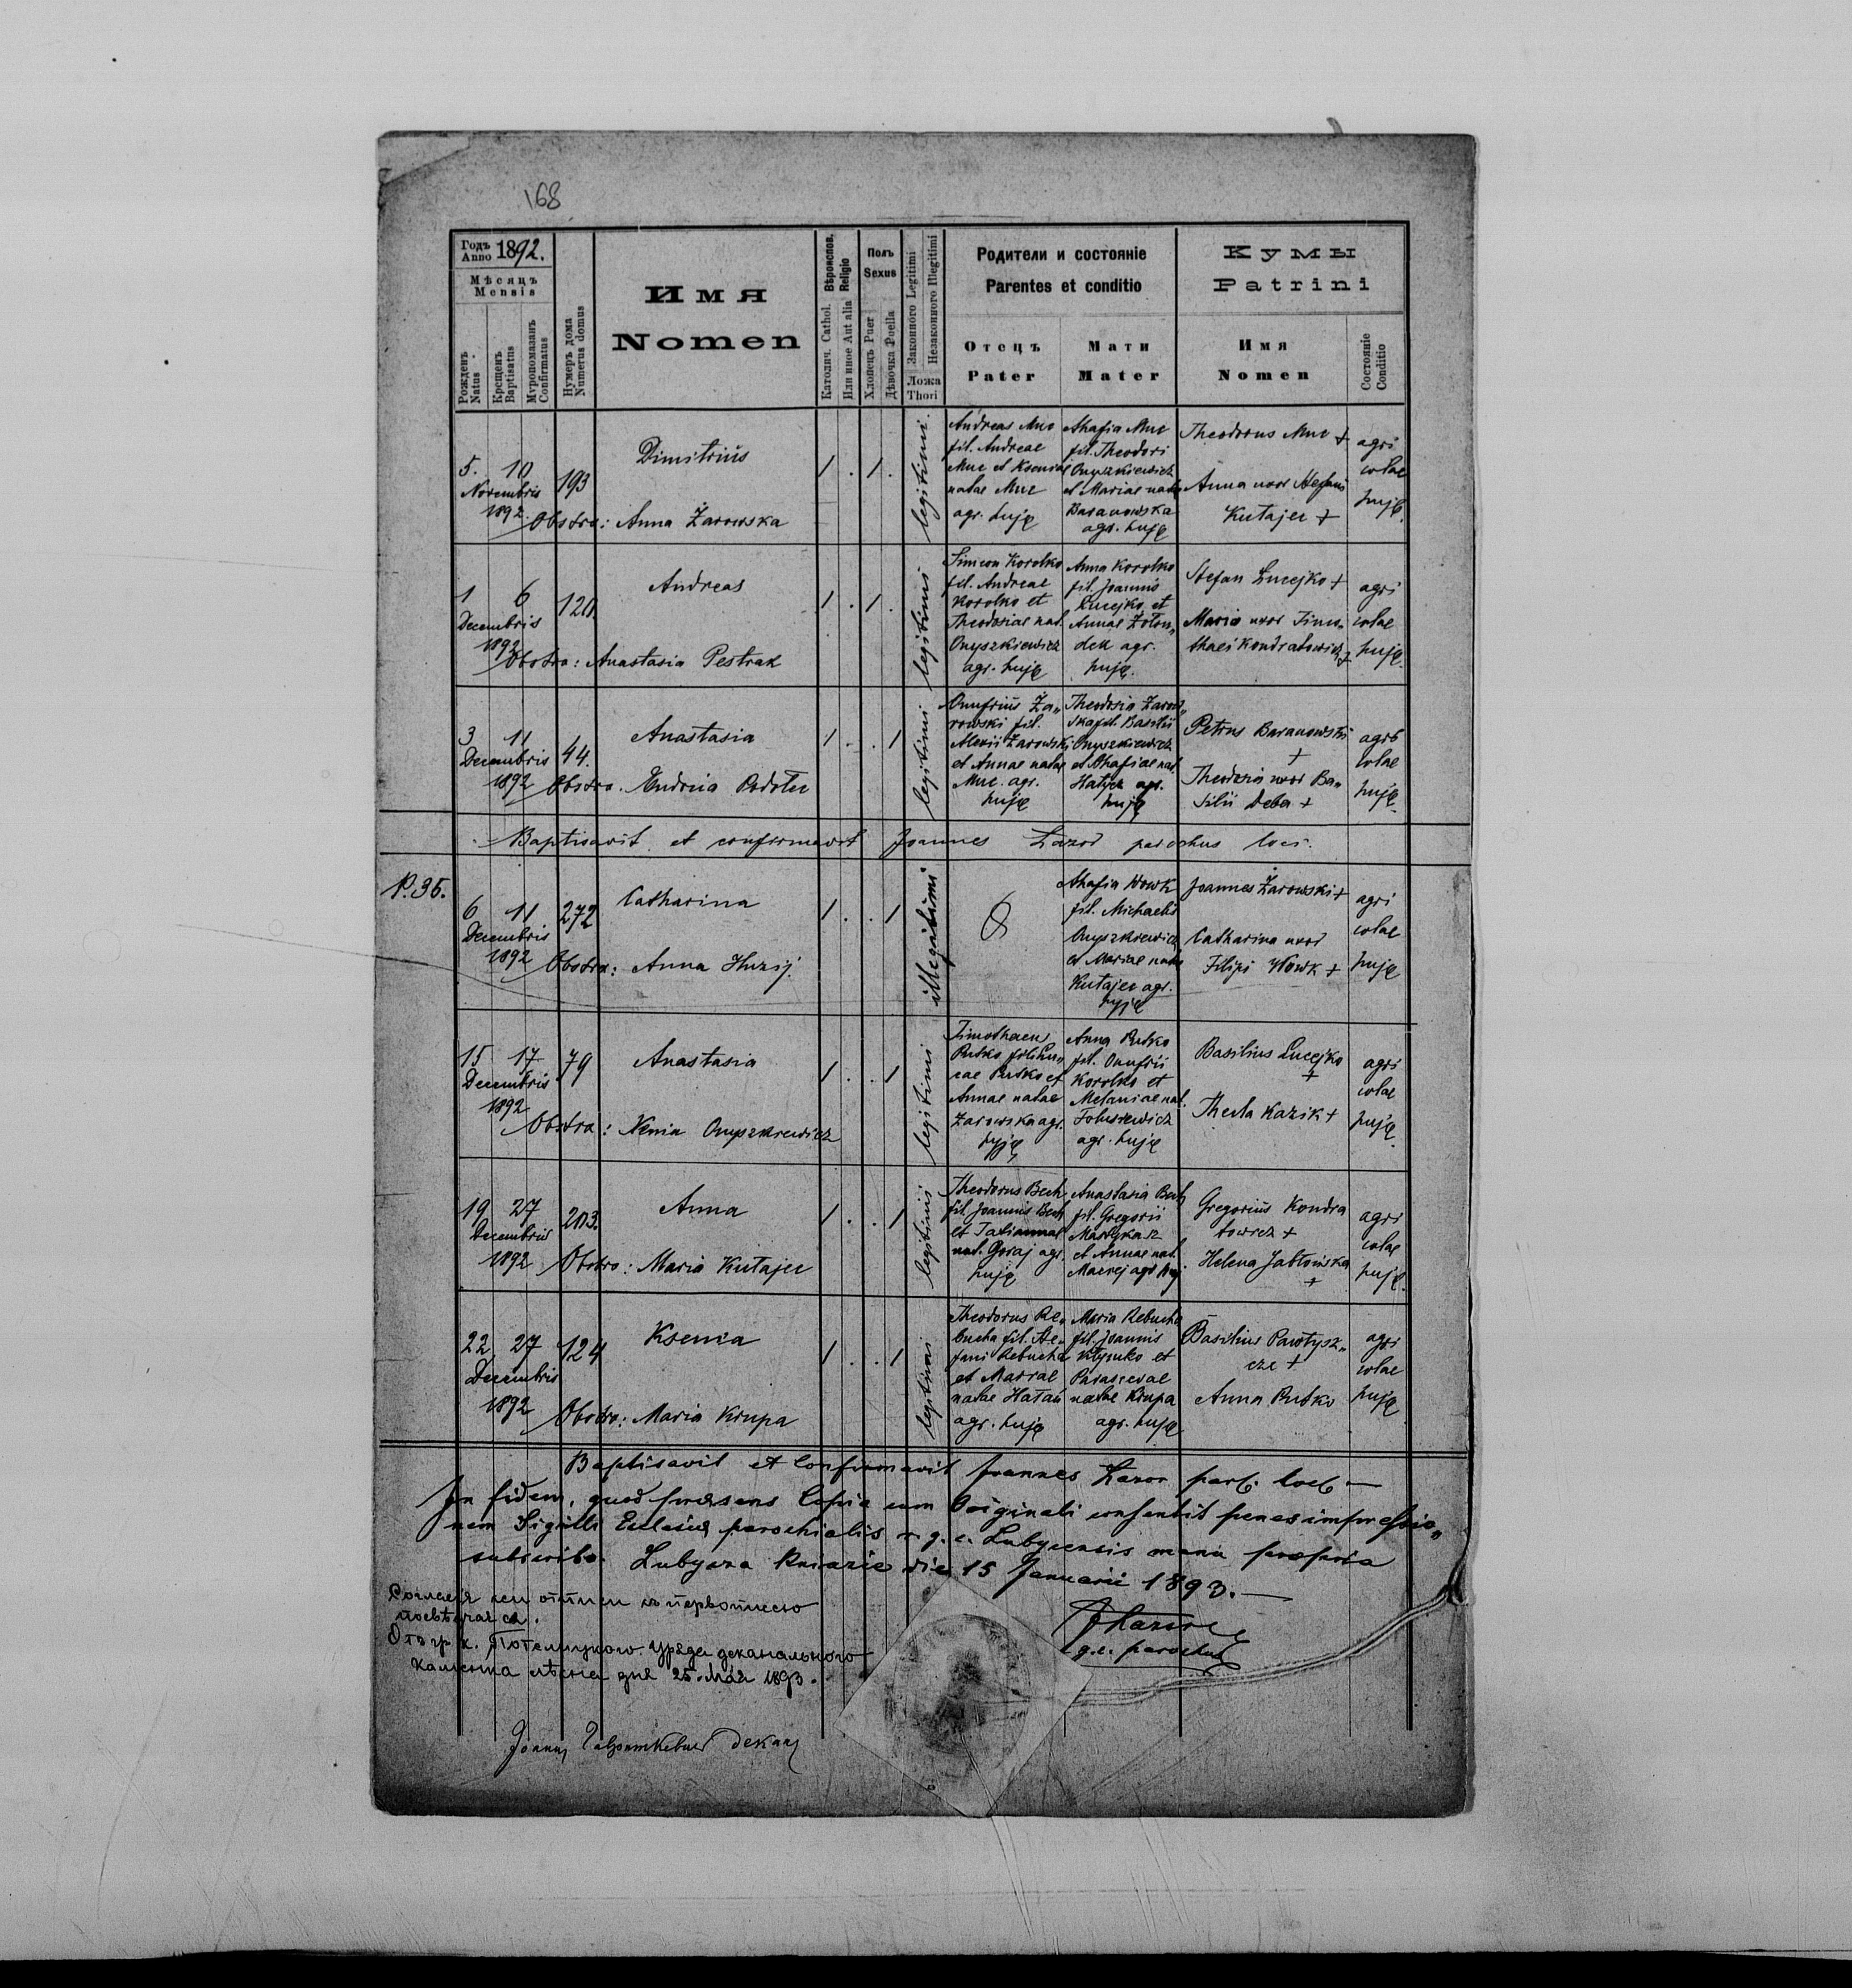 168
Годъ Anno 1892.
Мѣсяцъ
Mensis
Рожденъ Natus
Крещенъ Baptisatus
Мѵропомазанъ Confirmatus
Нумеръ дома Numerus domus
Имя
Nomen
Вѣроиспов. Religio
Католич. Cathol.
Или иное Aut alia
Полъ
Sexus
Хлопецъ Puer
Дѣвочка Puella
Законного Legitimi
Незаконного Illegitimi
Ложа
Thori
Родители и состояніе
Parentes et conditio
Отецъ
Pater
Мати
Mater
Кумы
Patrini
Имя
Nomen
Состояніе
Conditio
5. 10
Novembris
1892
193
Dimitrius
Obstra: Anna Żarowska
1 . 1 .
legitimi
Andreas Muc
fil. Andreae
Muc et Kseniae
natae Muc
agr. huję
Ahafia Muc
fil. Theodori
Onyszkiewicz
et Mariae natae
Baranowska
agr. huję
Theodorus Muc +
Anna uxor Stefani
Kutajec +
agri
colae
huję.
1 6
Decembris
1892
120
Andreas
Obstra: Anastasia Pestrak
1 . 1 .
legitimi
Simeon Korolko
fil. Andreae
Korolko et
Theodosiae nat.
Onyszkiewicz
agr. huję
Anna Korolko
fil. Joannis
Lucejko et
Annae
agr.
huję.
Stefan Lucejko +
Maria uxor Timo„
thaei Kondratowicz +
agri
colae
huję.
3 11
Decembris
1892
44.
Anastasia
Obstra.
1 . . 1
legitimi
Onufrius Ża„
rowski fil.
Alexii Żarowski
et Annae natae
Muc. agr.
huję
Theodosia Żarow„
ska fil. Basilii
Onyszkiewicz
et Ahafiae nat.
agr.
huję
Petrus Baranowski
+
Theodosia uxor Ba„
silii Deba +
agri
colae
huję.
Baptisavit et confirmavit Joannes Łazor parochus loci.
P. 35.
6 11
Decembris
1892
272
Catharina
Obstra: Anna
1 . . 1
illegitimi
Ahafia Wowk
fil. Michaelis
Onyszkiewicz
et Mariae natae
Kutajec agr.
huję
Joannes Żarowski +
Catharina uxor
Filipi Wowk +
agri
colae
huję
15 17
Decembris
1892
79
Anastasia
Obstra: Xenia Onyszkiewicz
1 . . 1
legitimi
Timothaeus
Rutko
Rutko et
Annae natae
Żarowska agr.
huję
Anna Rutko
fil. Onufrii
Korolko et
Melaniae nat.
agr. huję
Basilius Lucejko
+
Thecla Kazik +
agri
colae
huję.
19 27
Decembris
1892
203.
Anna
Obstra: Maria Kutajec
1 . . 1
legitimi
Theodorus Bech
fil. Joannis Bech
et Tatiannae
nat. Goraj agr.
huję
Anastasia Bech
fil. Gregorii
et Annae nat.
agr. huj.
Gregorius Kondra
towicz +
Helena Jabłońska
+
agri
colae
huję.
22 27
Decembris
1892
124
Ksenia
Obstra: Maria Krupa
1 . . 1
legitimi
Theodorus Re„
bucha fil. Ste„
fani Rebucha
et Mariae
natae
agr. huję
Maria Rebucha
fil. Joannis
et
Parascevae
natae Krupa
agr. huję
Basilius Pawłysz„
cze +
Anna Rutko
agri
colae
huję
Baptisavit et confirmavit Joannes Łazor par. loci.—
In fidem, quod praesens Copia cum Originali consentit penes impressio„
nem Sigilli Ecclesiae parochialis r. g. c. Lubycensis manu propria
subscribo. Lubycza Kniazie die 15 Januarii 1893.—
JŁazor
g. c. parochus
первописею
Отъ гр. к. Потелицкого уряда деканального
дня 25 Мая 1893.
деканъ